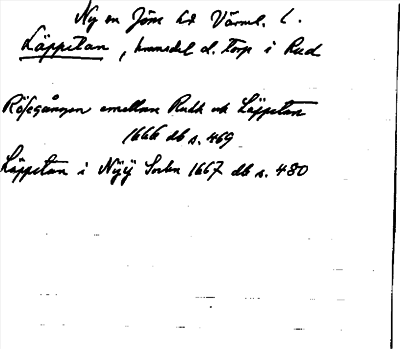 Ny sn Jösse hd Värml. l.
Läppetan, hemmsdel o. torp i Rud
Råsegången emellan Rudh och Läppetan
1666 db s. 469
Läppetan i Nÿÿ Sochn 1667 db s. 480